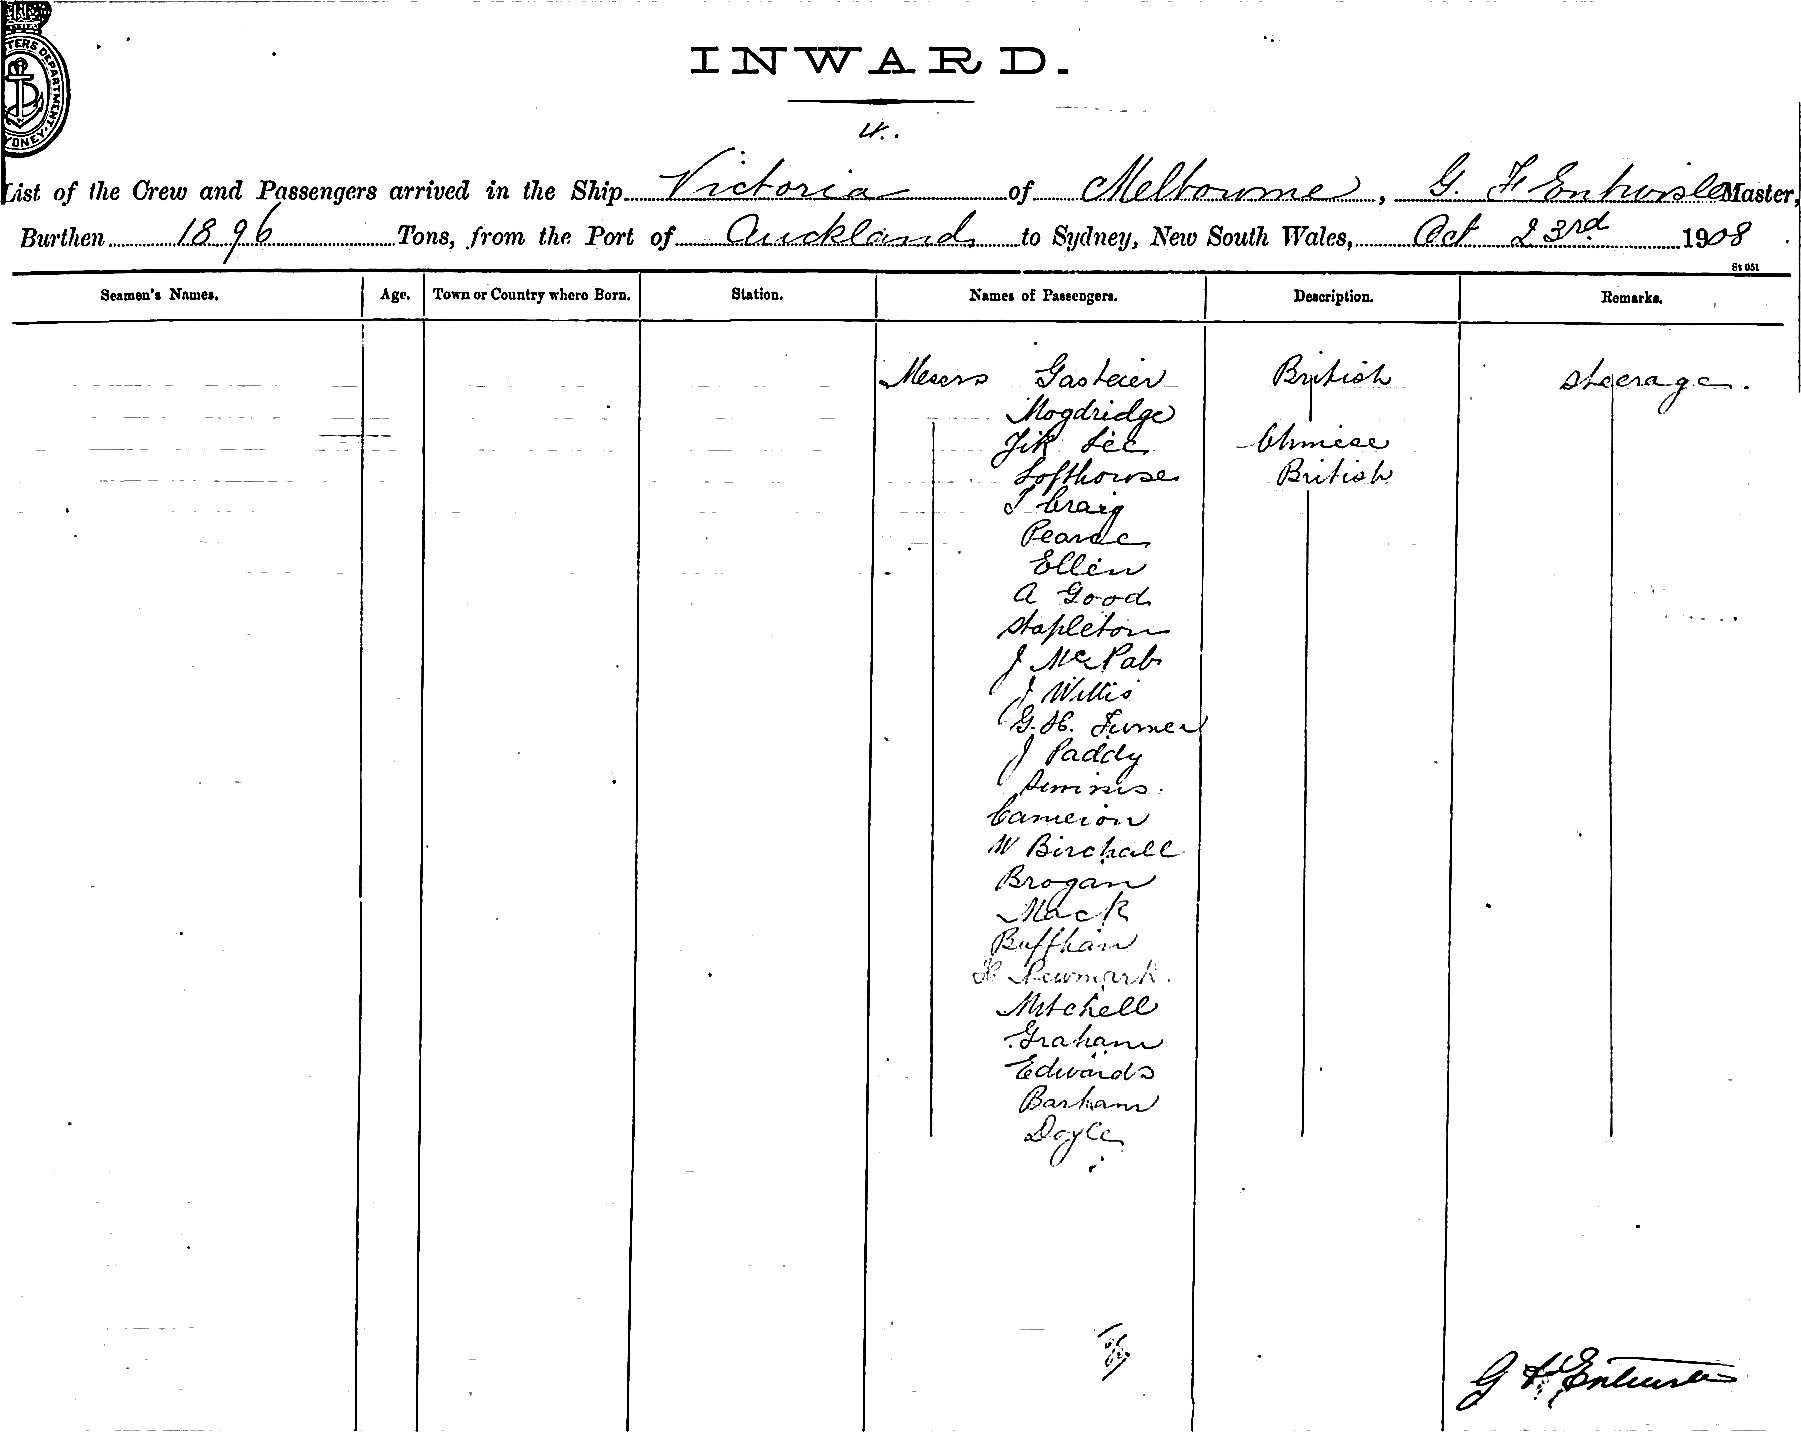 INWARD.
4.
List of the Crew and Passengers arrived in the Ship Victoria of Melbourne, G. F Entwisle Master,
Burthen 1896 Tons, from the Port of Auckland to Sydney, New South Wales, Oct 23rd 1908
St 051
Seamen's Names. Age. Town or Country where Born. Station. Names of Passengers. Description. Remarks.
Messrs Gasteier British Steerage.
Mogdridge
Jik Lee Chinese
Lofthouse British
T Craig
Pearce
Ellen
A Good
Stapleton
J McNab
J Willis
G. H. Turner
J Paddy
Simms
Cameron
W Birchall
Brogan
Mack
Buffham
H Newmark
Mitchell
Graham
Edwards
Barham
Doyle
G F Entwisle